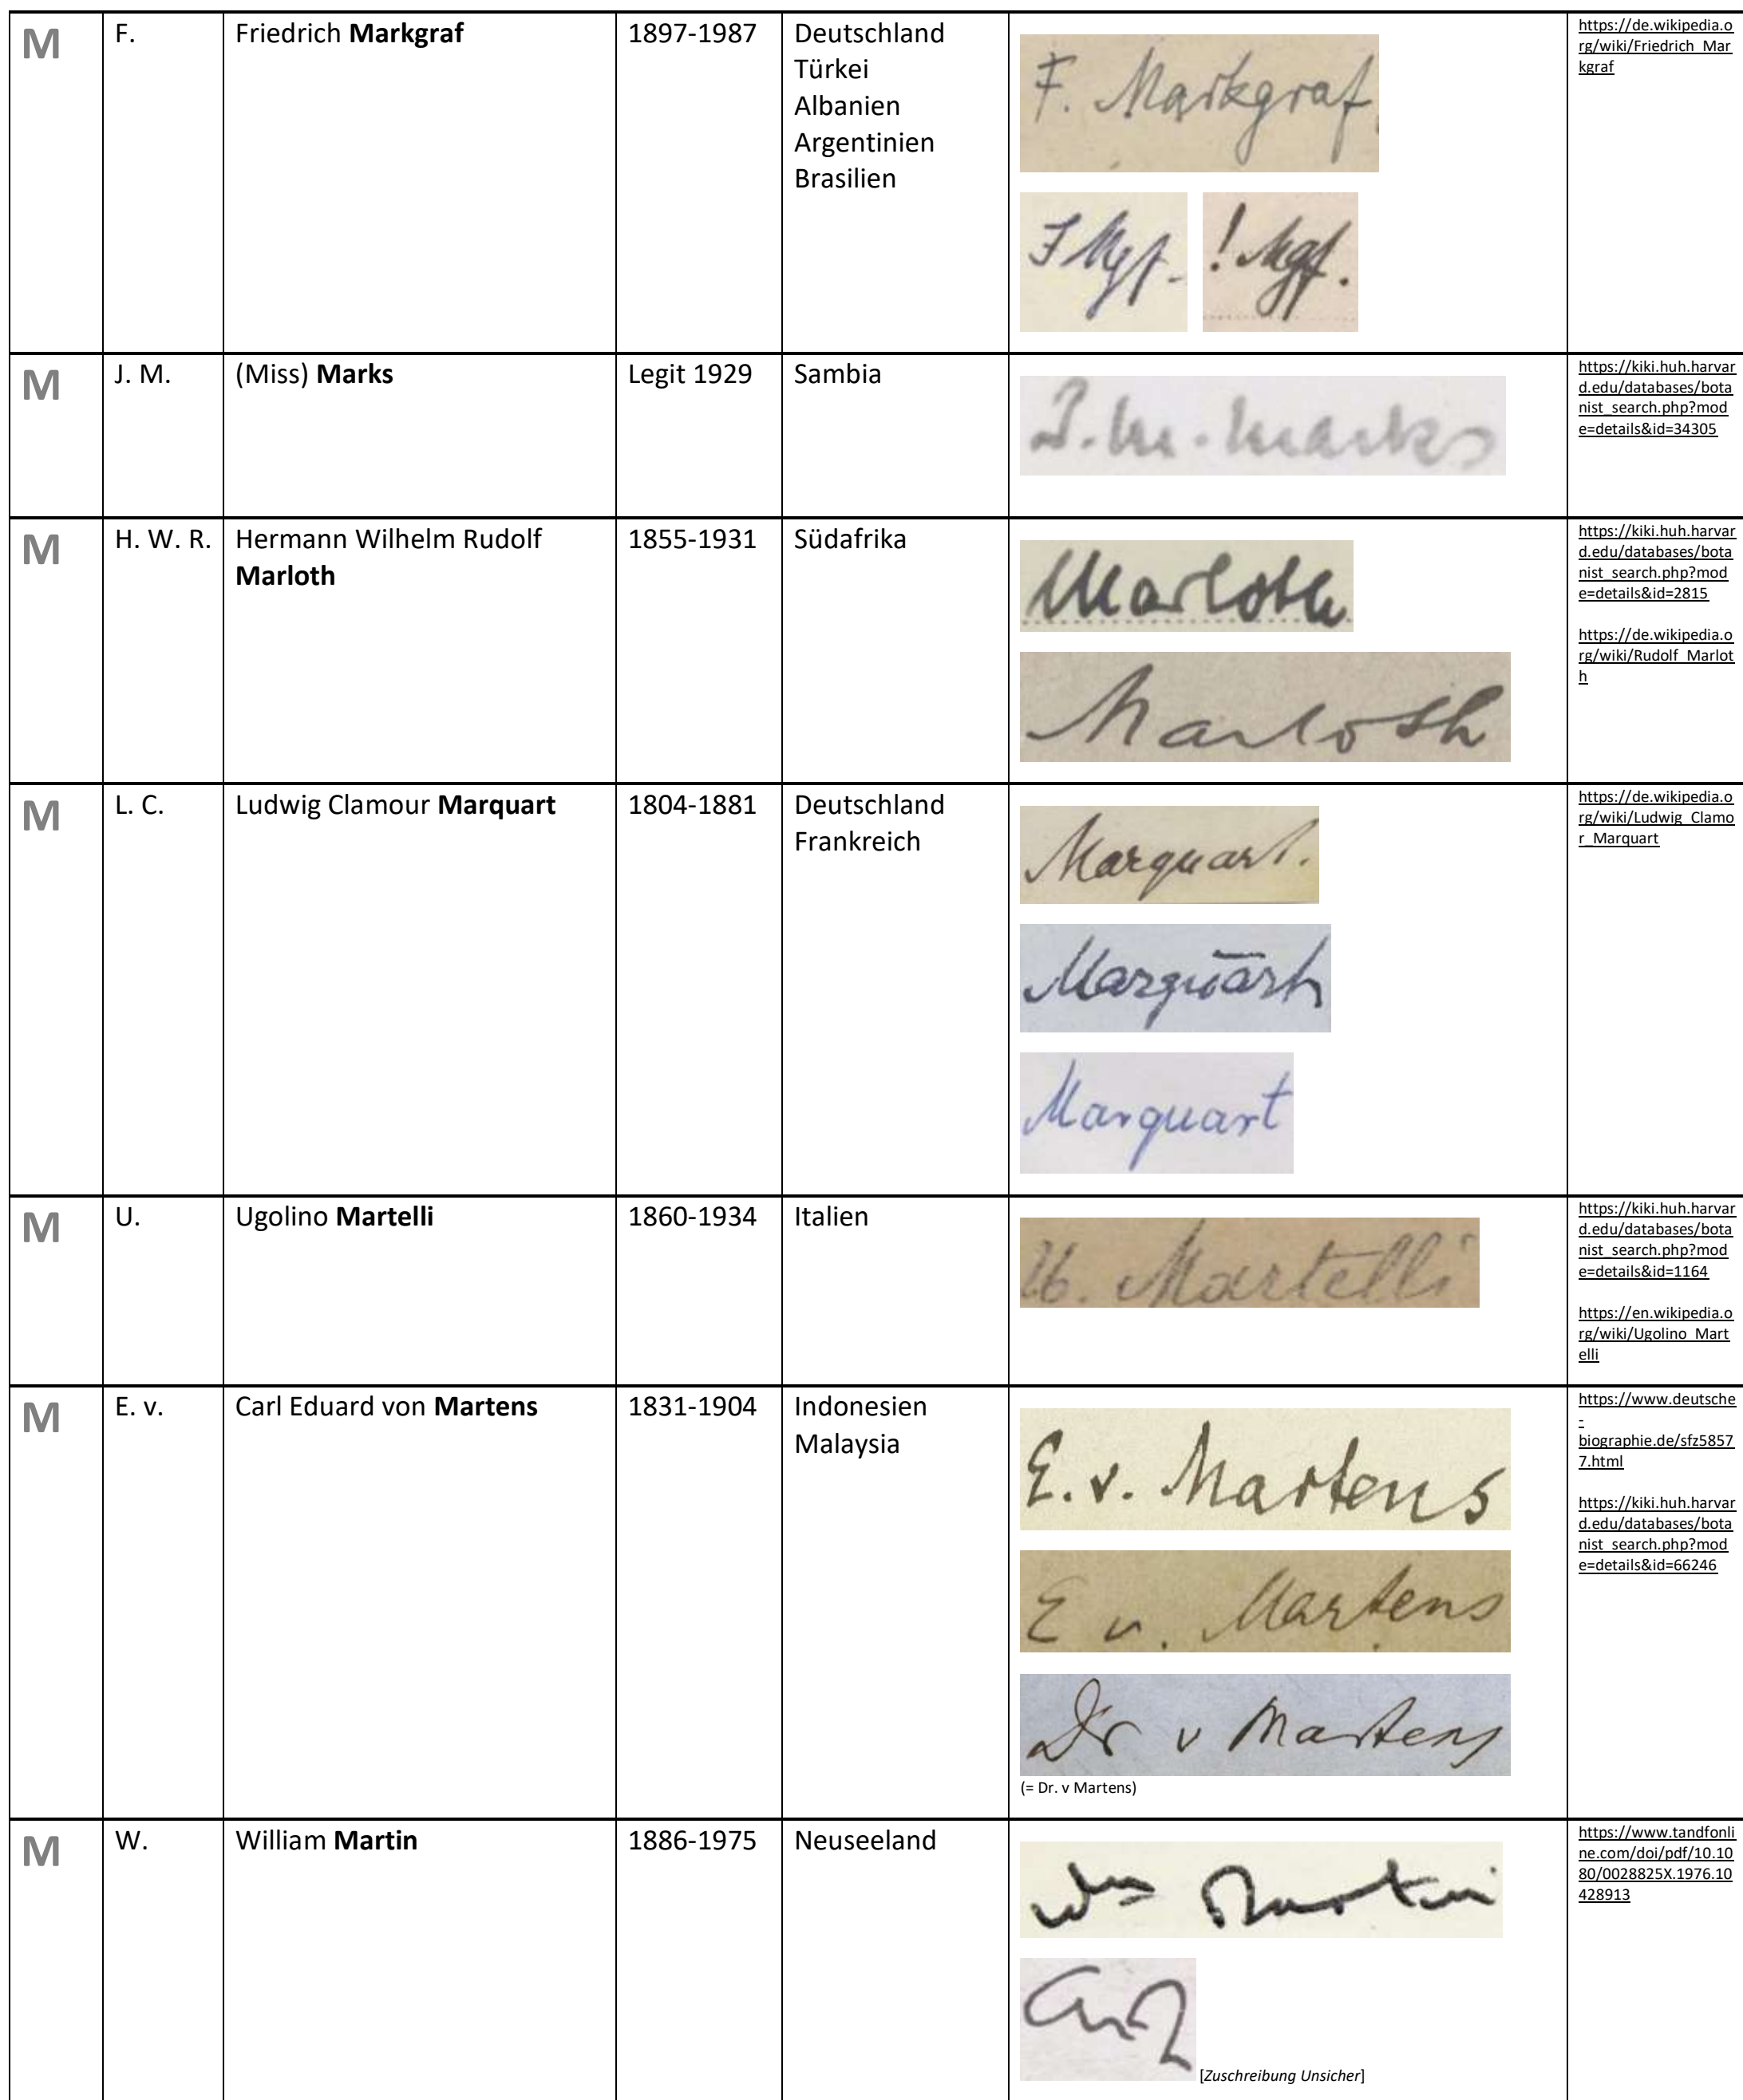 M F. Friedrich Markgraf 1897-1987 Deutschland
Türkei
Albanien
Argentinien
Brasilien
F. Markgraf
F Mgf. ! Mgf.
https://de.wikipedia.o
rg/wiki/Friedrich_Mar
kgraf
M J. M. (Miss) Marks Legit 1929 Sambia
J. M. Marks
https://kiki.huh.harvar
d.edu/databases/bota
nist_search.php?mod
e=details&id=34305
M H. W. R. Hermann Wilhelm Rudolf
Marloth
1855-1931 Südafrika
Marloth
Marloth
https://kiki.huh.harvar
d.edu/databases/bota
nist_search.php?mod
e=details&id=2815
https://de.wikipedia.o
rg/wiki/Rudolf_Marlot
h
M L. C. Ludwig Clamour Marquart 1804-1881 Deutschland
Frankreich
Marquart.
Marquart
Marquart
https://de.wikipedia.o
rg/wiki/Ludwig_Clamo
r_Marquart
M U. Ugolino Martelli 1860-1934 Italien
U. Martelli
https://kiki.huh.harvar
d.edu/databases/bota
nist_search.php?mod
e=details&id=1164
https://en.wikipedia.o
rg/wiki/Ugolino_Mart
elli
M E. v. Carl Eduard von Martens 1831-1904 Indonesien
Malaysia
E. v. Martens
E v. Martens
Dr v Martens
(= Dr. v Martens)
https://www.deutsche
-
biographie.de/sfz5857
7.html
https://kiki.huh.harvar
d.edu/databases/bota
nist_search.php?mod
e=details&id=66246
M W. William Martin 1886-1975 Neuseeland
Wm Martin
[Zuschreibung Unsicher]
https://www.tandfonli
ne.com/doi/pdf/10.10
80/0028825X.1976.10
428913